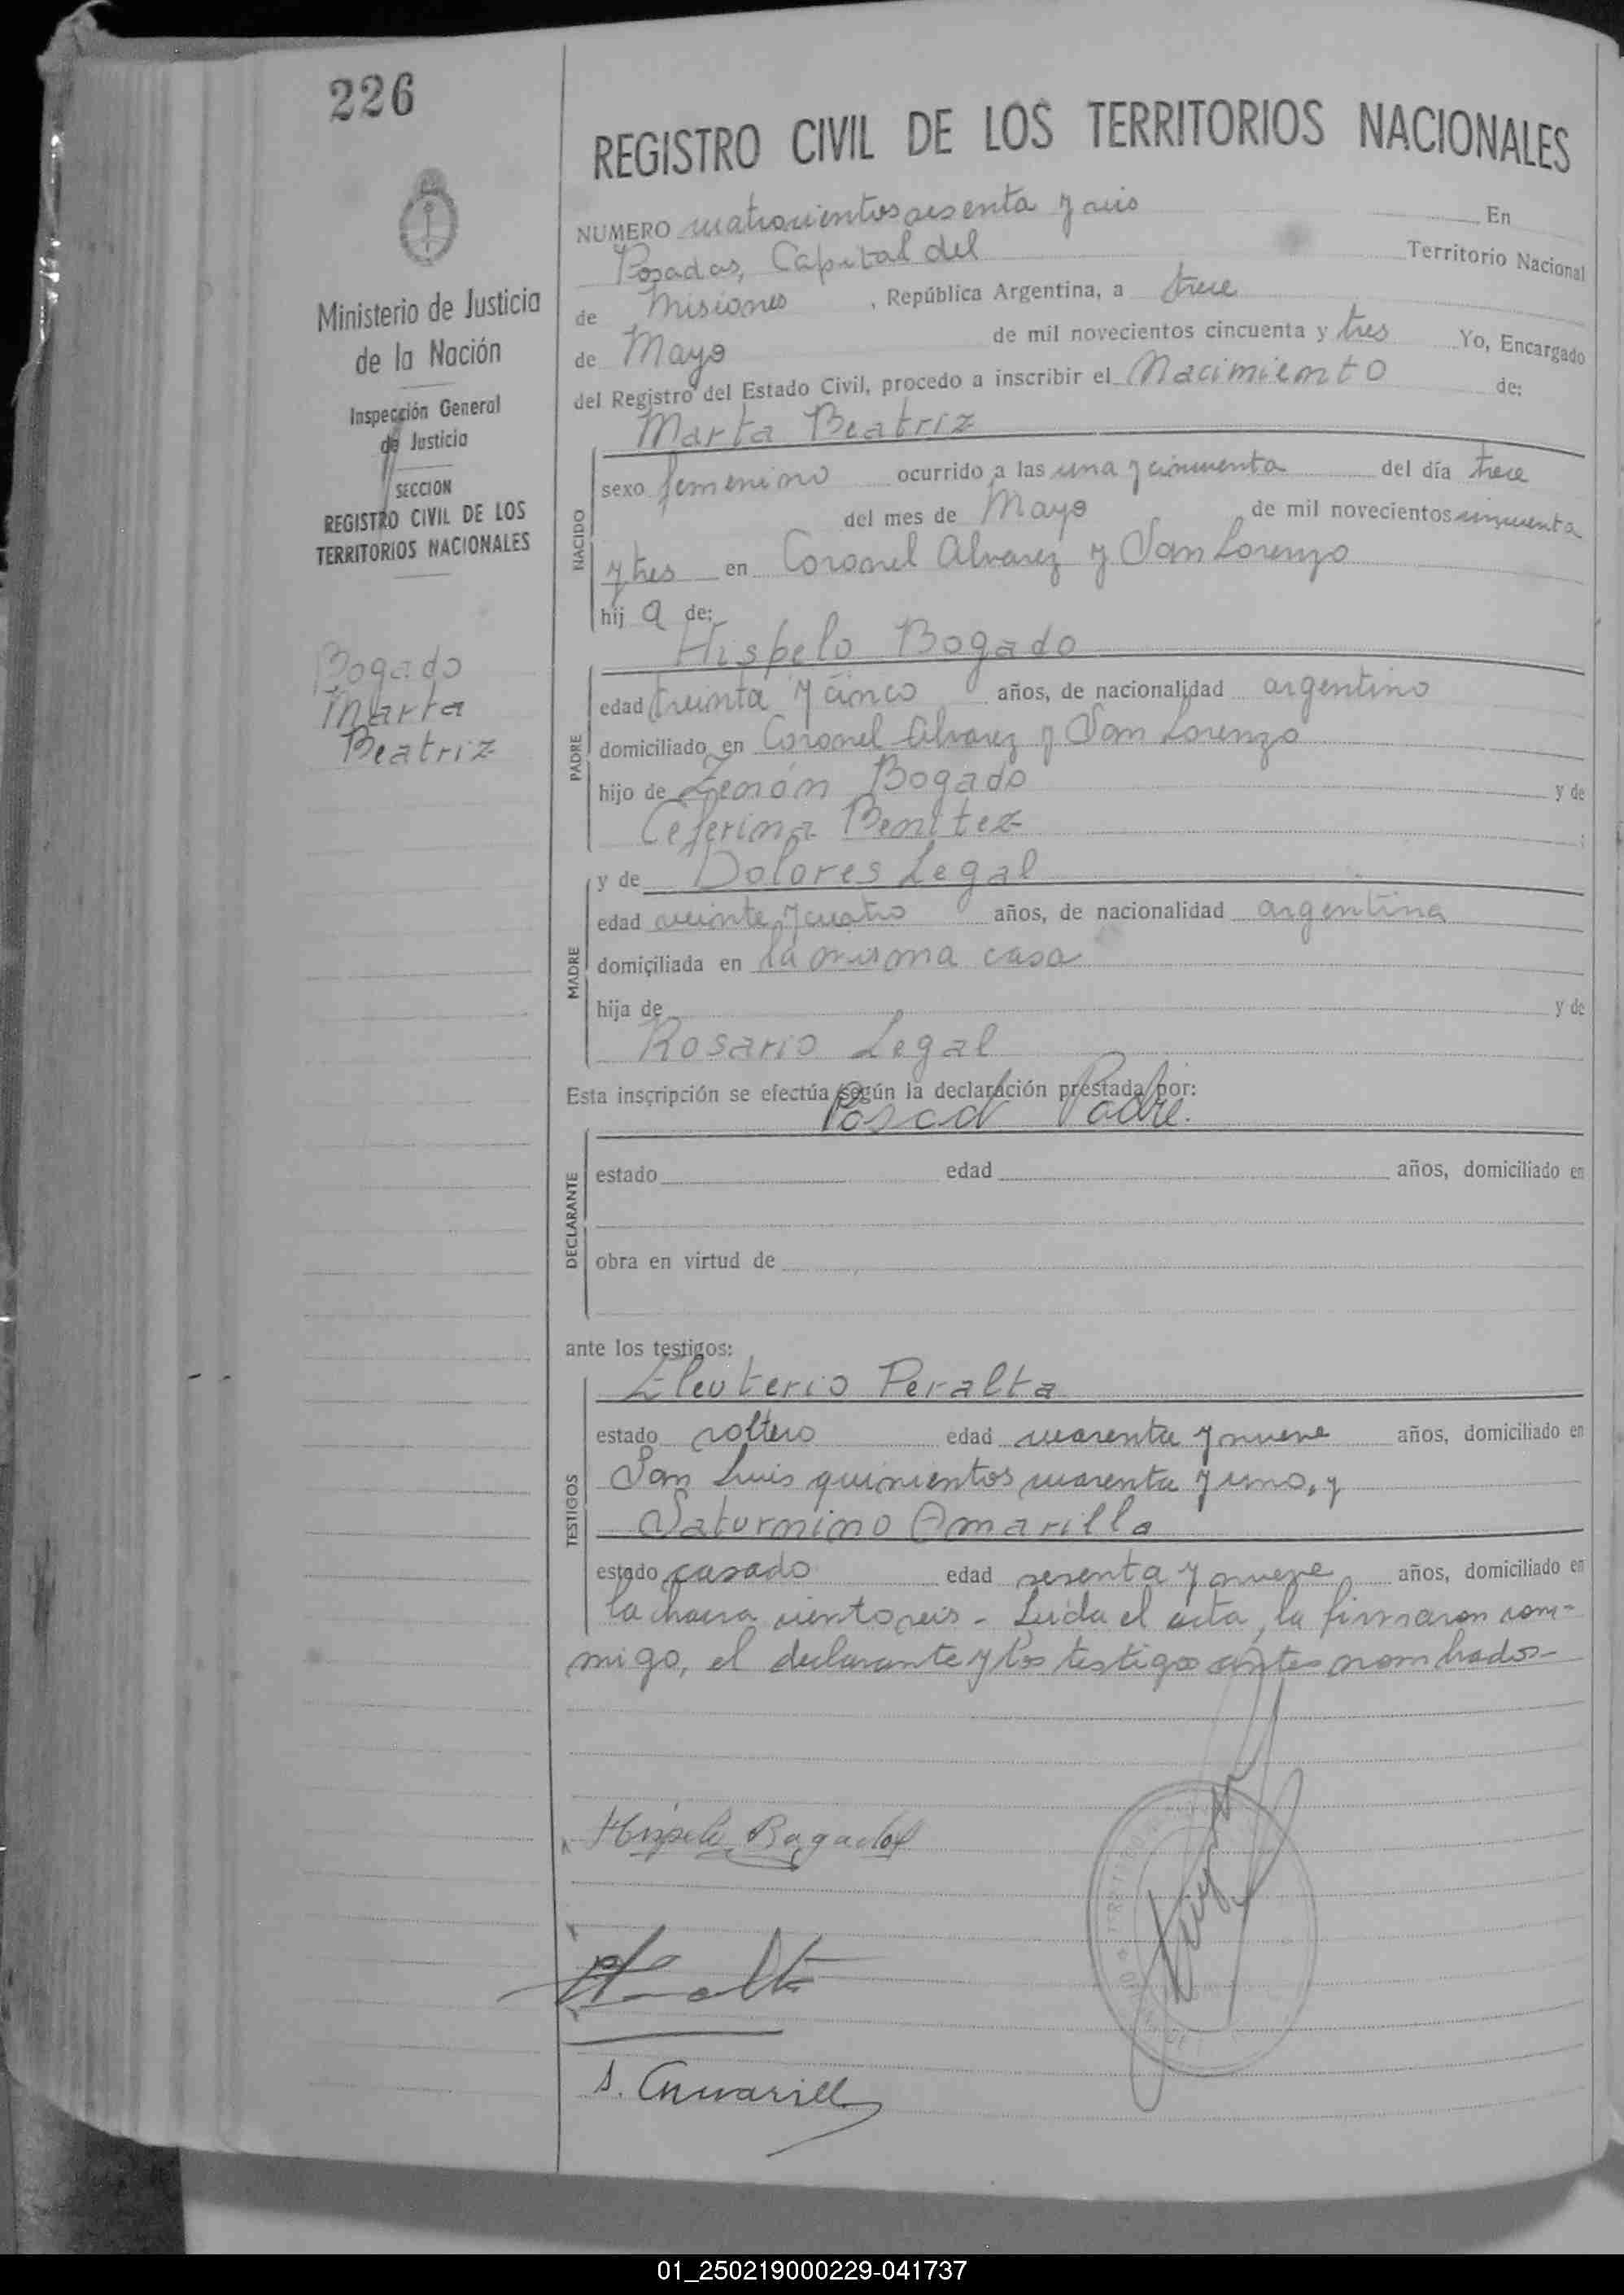 226
REGISTRO CIVIL DE LOS TERRITORIOS NACIONALES
Ministerio de Justicia
de la Nación
Inspección General
de Justicia
SECCION
REGISTRO CIVIL DE LOS
TERRITORIOS NACIONALES
Bogado
Marta
Beatriz
NUMERO cuatrocientos sesenta y seis En
Posadas, Capital del Territorio Nacional
de Misiones, República Argentina, a trece
de Mayo de mil novecientos cincuenta y tres Yo, Encargado
del Registro del Estado Civil, procedo a inscribir el Nacimiento de:
Marta Beatriz
NACIDO
sexo femenino ocurrido a las una y cincuenta del día trece
del mes de Mayo de mil novecientos cincuenta
y tres en Coronel Alvarez y San Lorenzo
hija de:
Hispelo Bogado
PADRE
edad treinta y cinco años, de nacionalidad argentino
domiciliado en Coronel Alvarez y San Lorenzo
hijo de Zenón Bogado y de
Ceferina Benitez ;
y de Dolores Legal
MADRE
edad veinte y cuatro años, de nacionalidad argentina
domiciliada en la misma casa
hija de y de
Rosario Legal
Esta inscripción se efectúa según la declaración prestada por:
Padre.
DECLARANTE
estado edad años, domiciliado en
obra en virtud de
ante los testigos:
Eleuterio Peralta
TESTIGOS
estado soltero edad cuarenta y nueve años, domiciliado en
San Luis quinientos cuarenta y uno, y
Saturnino Amarilla
estado casado edad sesenta y nueve años, domiciliado en
la chacra ciento seis - Leída el acta, la firmaron con-
migo, el declarante y los testigos antes nombrados-
Hispelo Bogado
S. Amarill
01_250219000229-041737